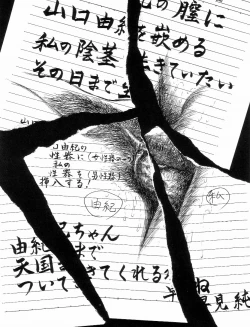 の膣に
山口由紀を嵌める
私の陰茎 生きていたい
その日まで
山由紀の
性器に(女性器
私の
性器を(男性器)
挿入する!
由紀
私
由紀 ちゃん
天国まで
ついてきてくれるね
早見純